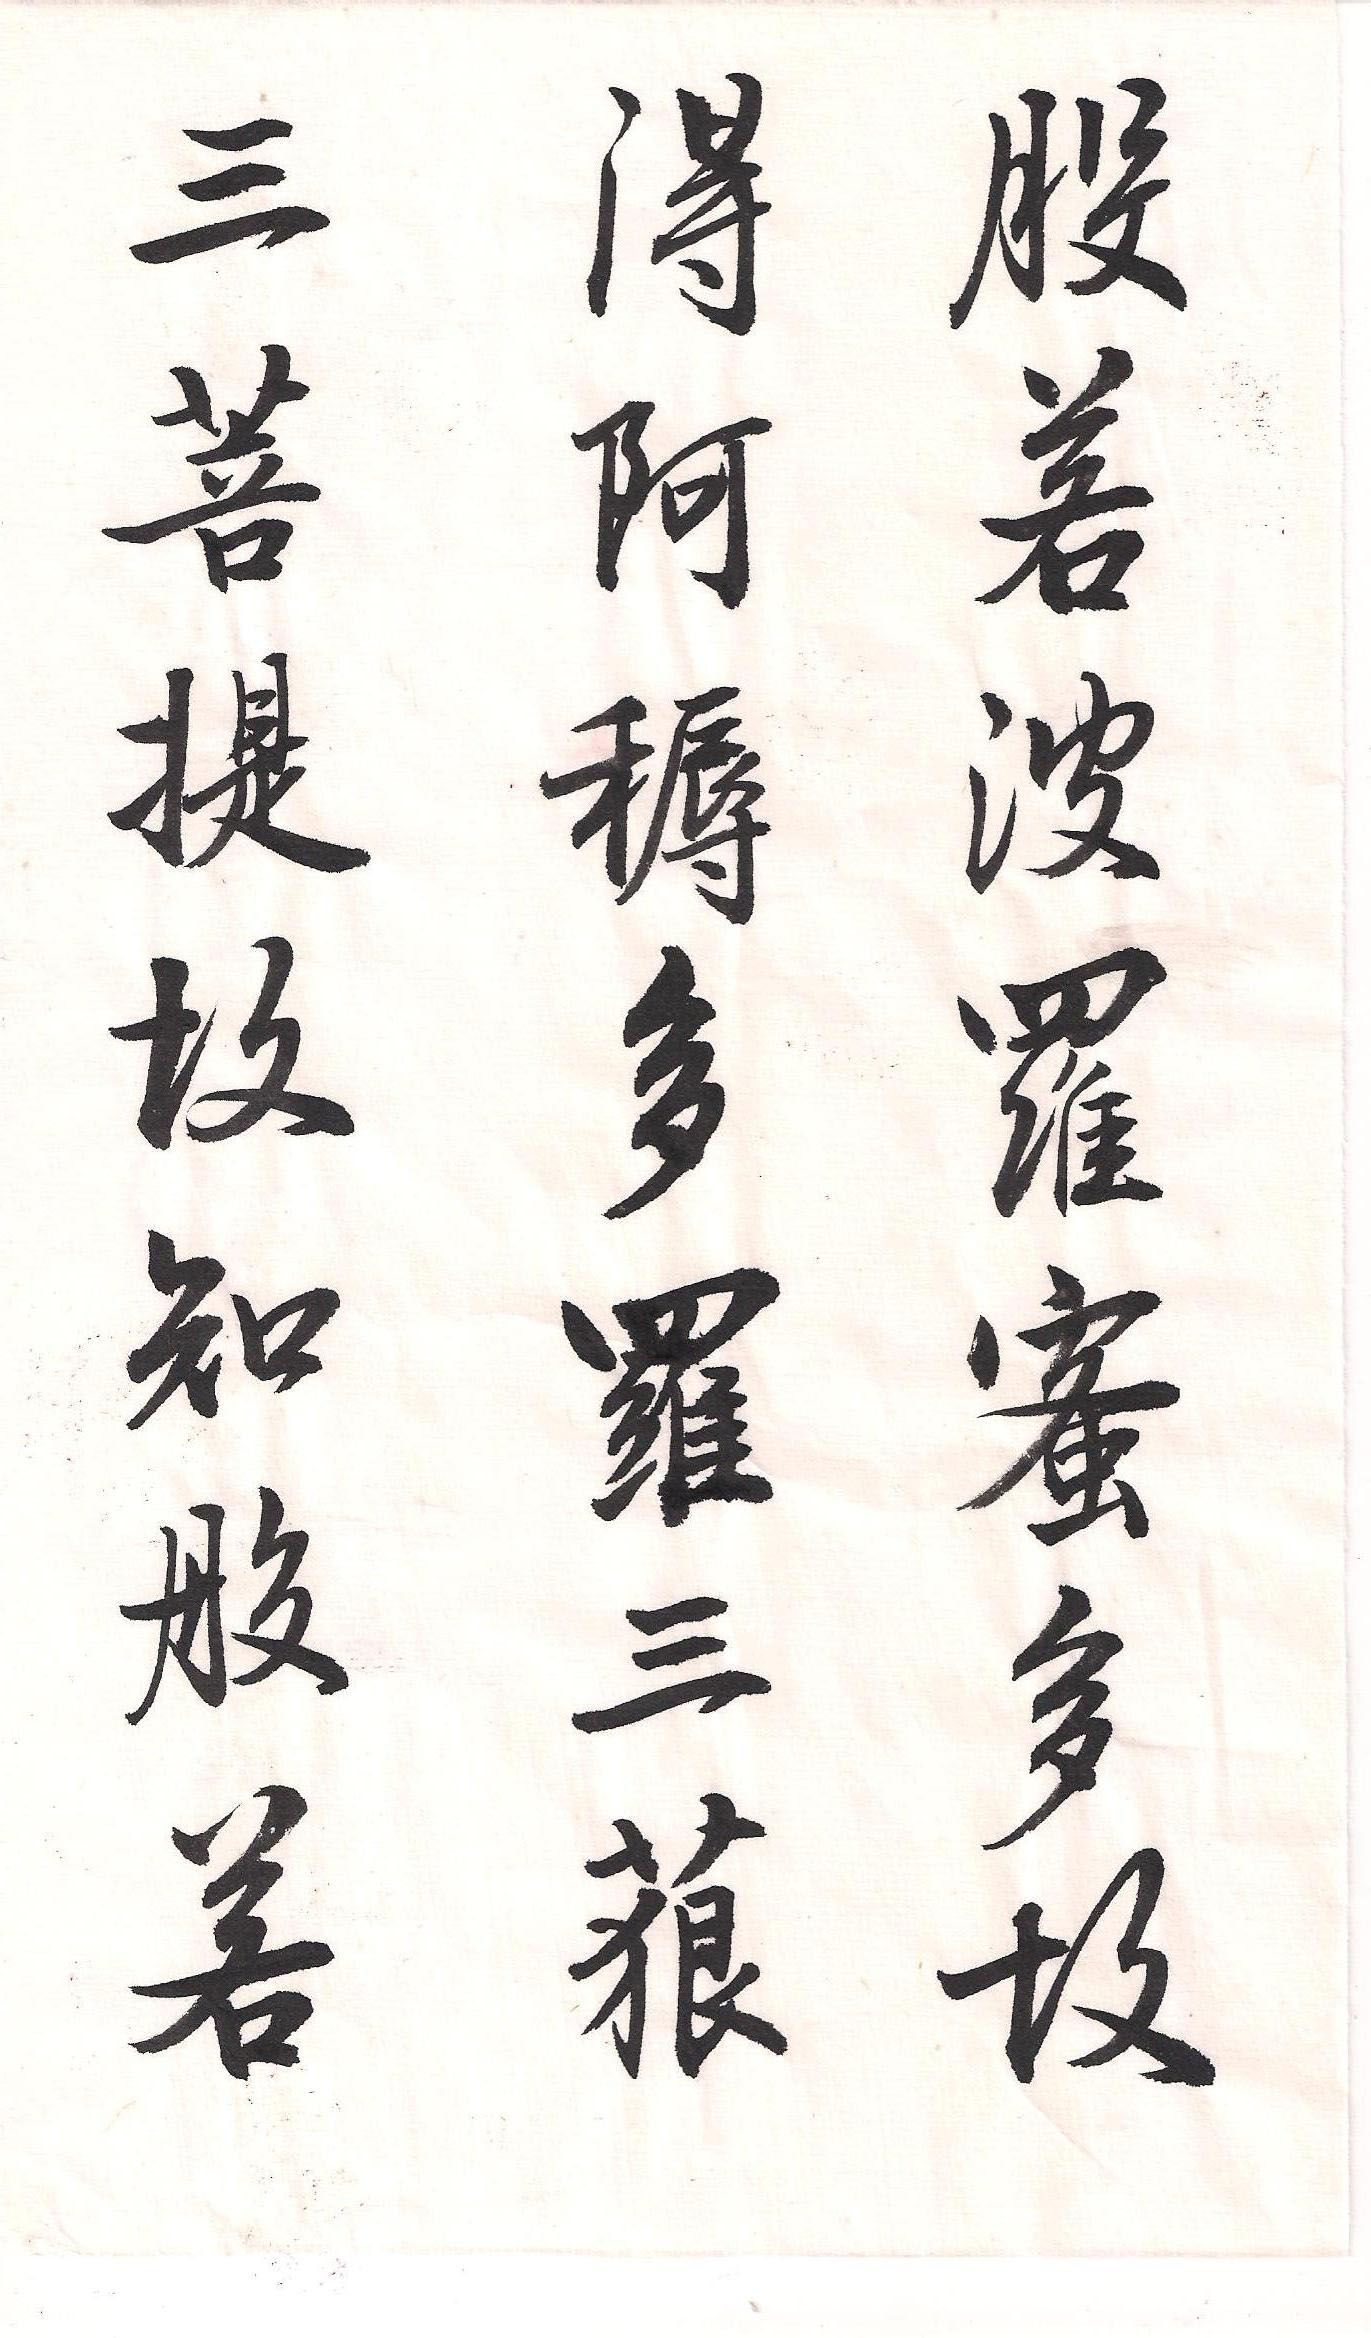 般若波羅蜜多故
得阿耨多羅三藐
三菩提故知般若